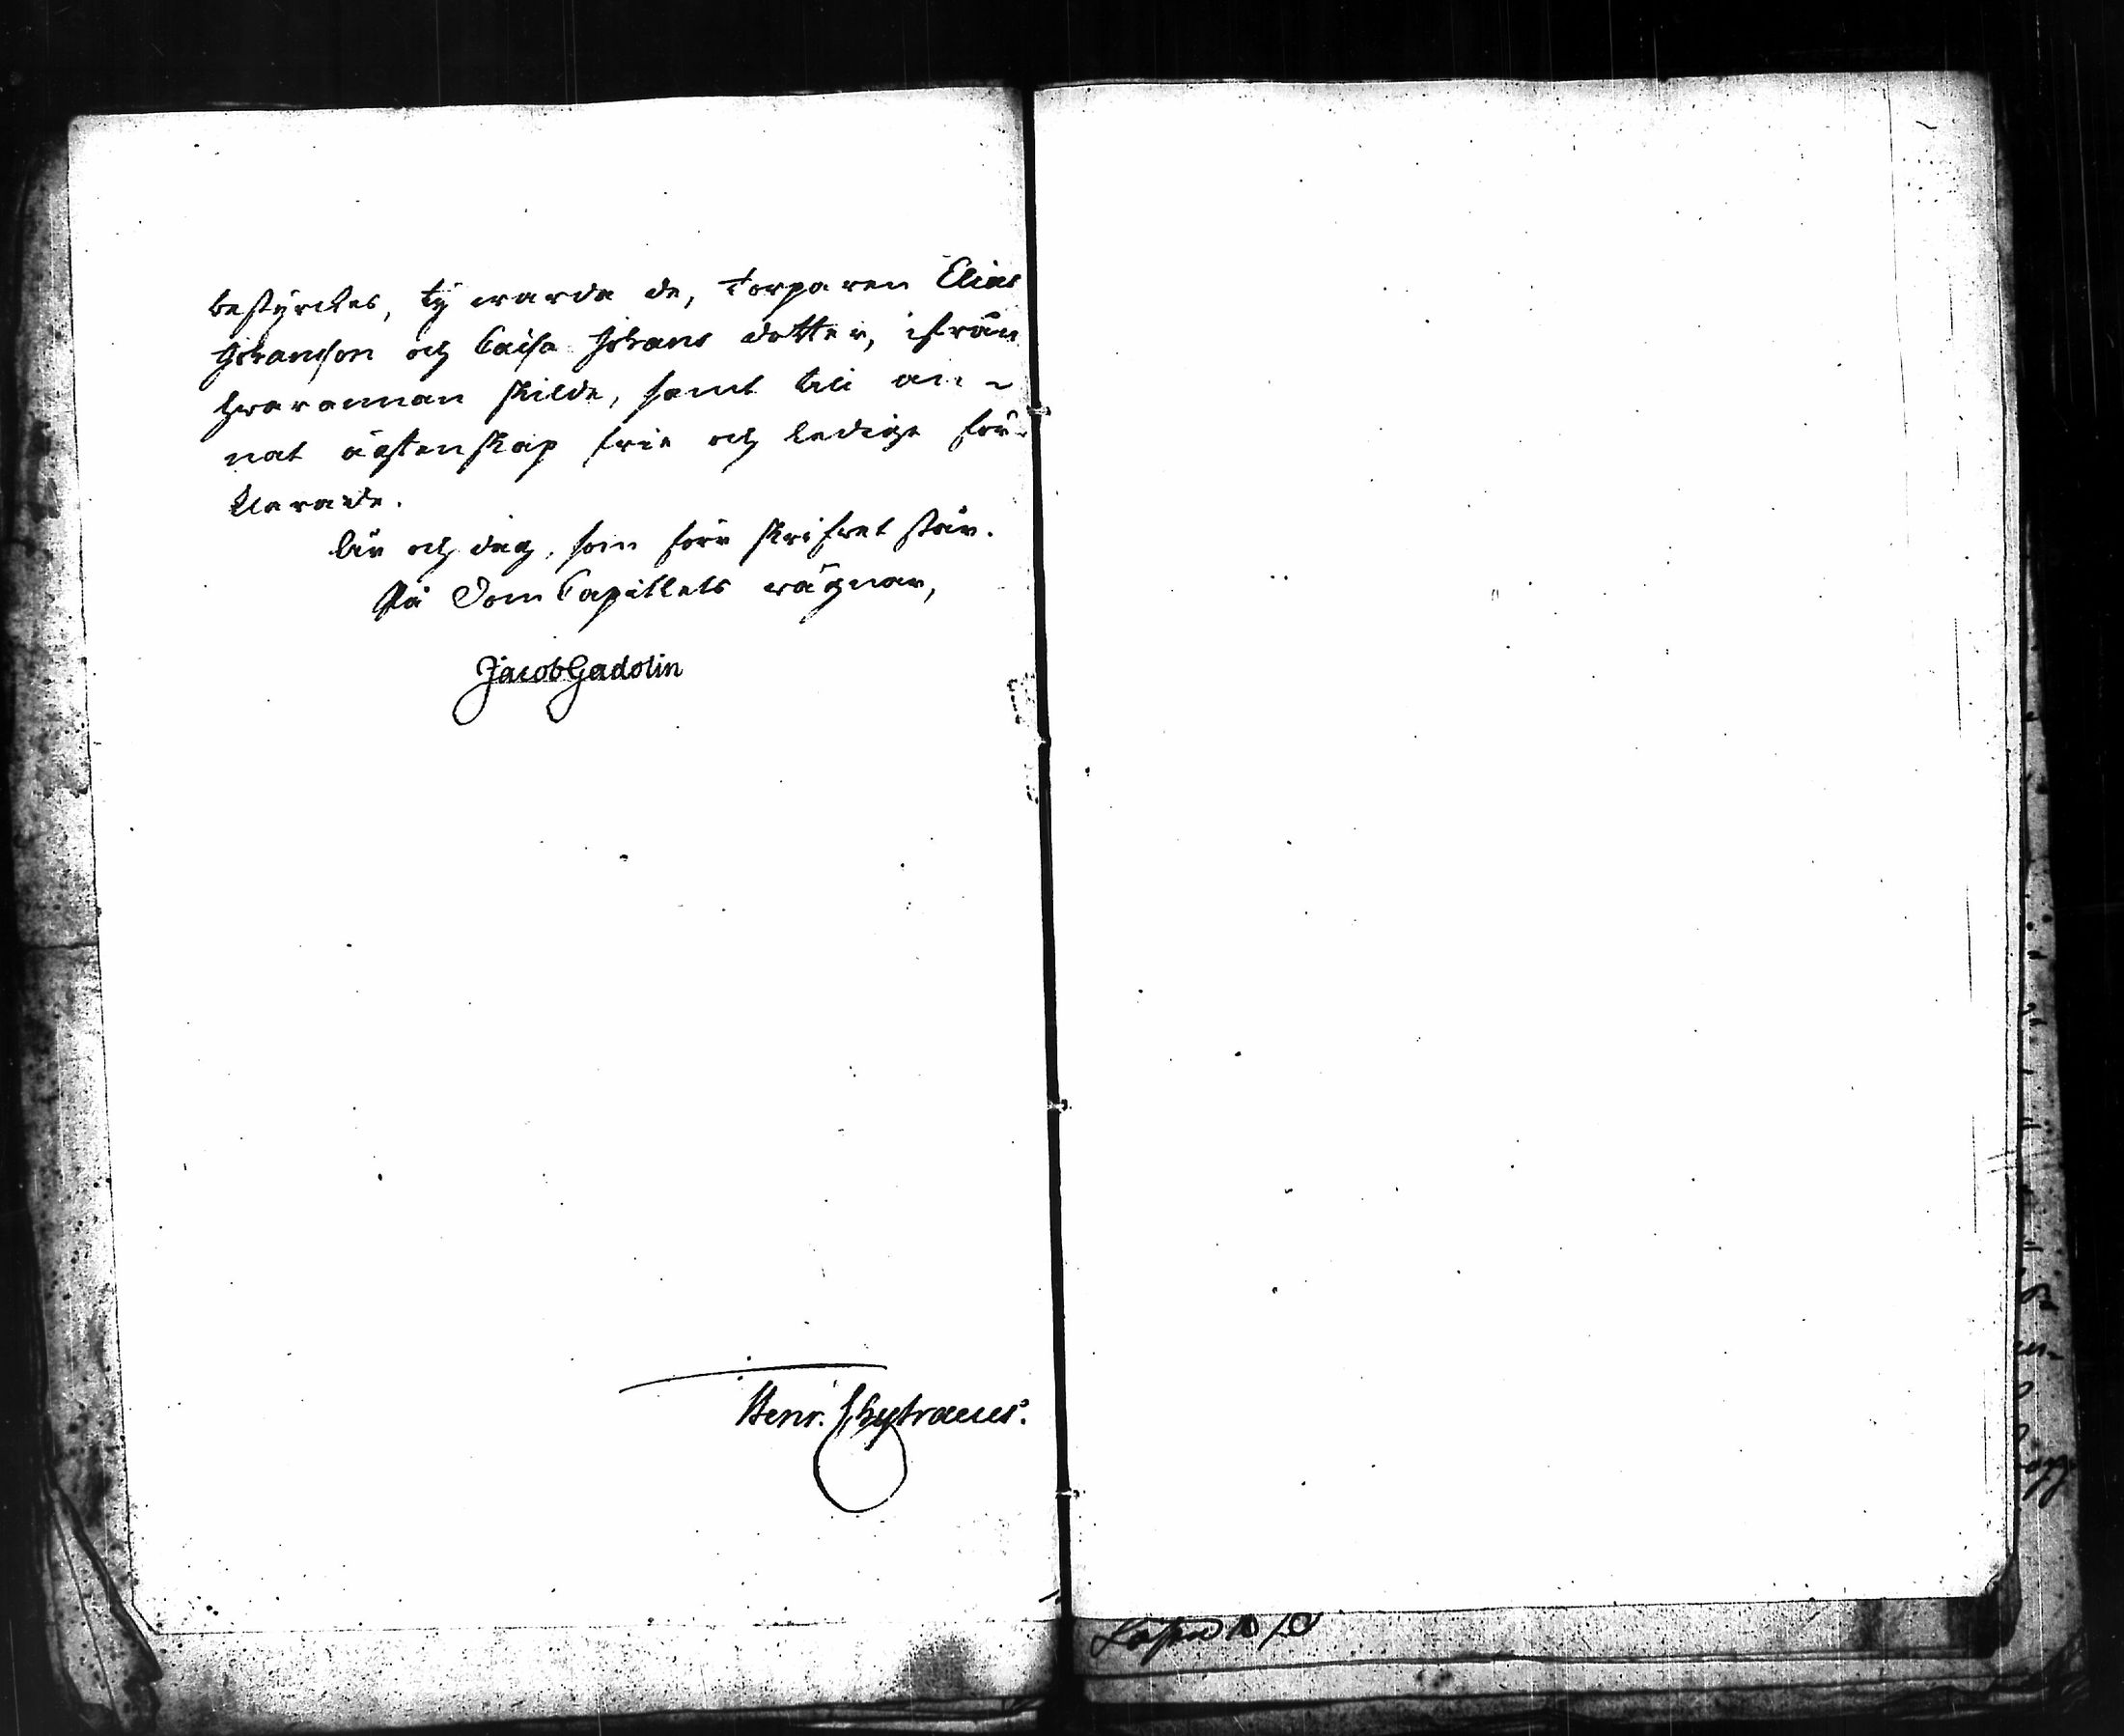 bestyrckes, ty warda de, Torparen Elias
Johansson och Caisa Johans dotter, ifrån
hwarannan skilde, samt till an-
nat ägtenskap frie och ledige för-
klarade.
År och dag, som förr skrifwet står.
På Dom Capitlets wägnar,
Jacob Gadolin
Henr. Chytraeus.